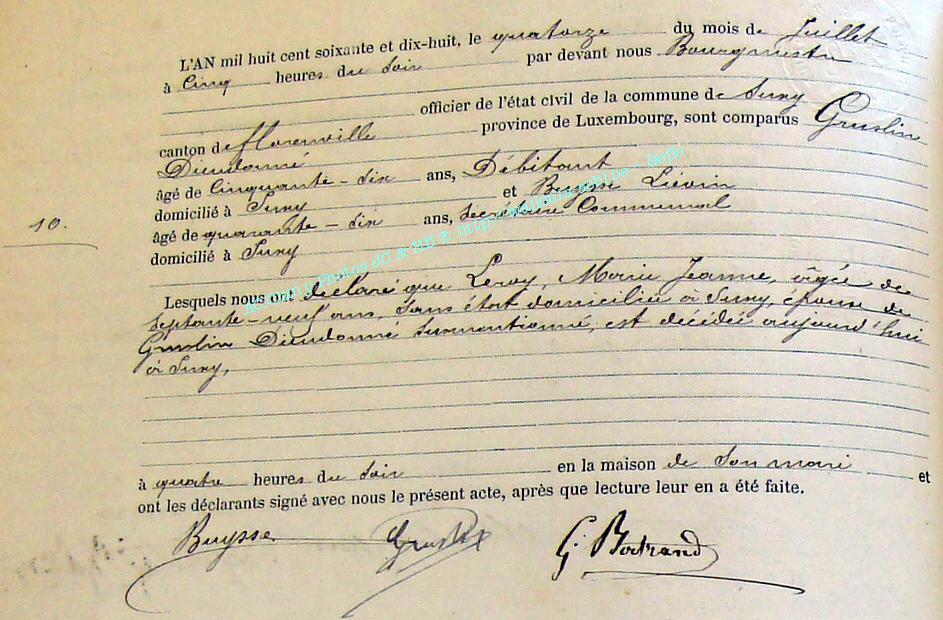 L'AN mil huit cent soixante et dix-huit, le quatorze du mois de Juillet
à Cinq heures du Soir par devant nous Bourgmestre
officier de l'état civil de la commune de Suny
canton de Florenville province de Luxembourg, sont comparus Gruslin
Dieudonné
âgé de Cinquante-six ans, Débitant
domicilié à Suny et Buysse Liévin
âgé de quarante-six ans, Secrétaire Communal
domicilié à Suny
10.
Lesquels nous ont déclaré que Leroy, Marie Jeanne, âgée de
Septante-neuf ans, Sans état domiciliée à Suny, épouse de
Gruslin Dieudonné susmentionné, est décédée aujourd'hui
à Suny,
à quatre heures du Soir en la maison de Son mari et
ont les déclarants signé avec nous le présent acte, après que lecture leur en a été faite.
Buysse Gruslin G. Bertrand